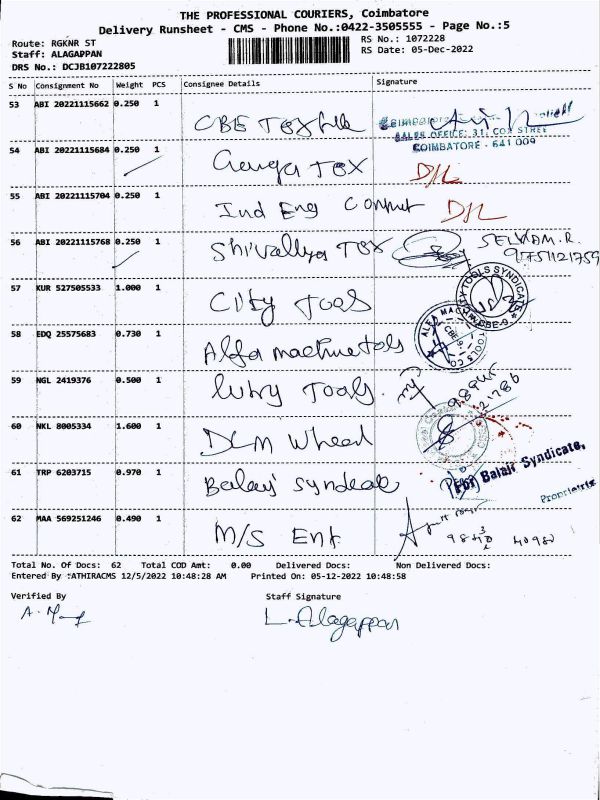 THE PROFESSIONAL COURIERS, Coimbatore
Delivery Runsheet - CMS - Phone No.:0422-3505555 - Page No.:5
Route: RGKNR ST
RS No.: 1072228
Staff: ALAGAPPAN
RS Date: 05-Dec-2022
DRS No.: DCJB107222805
S No Consignment No Weight PCS Consignee Details Signature
53 ABI 20221115662 0.250 1 CBE Tex
SALES OFFICE: 31, COX STREET
COIMBATORE - 641 009
54 ABI 20221115684 0.250 1 Ganga Tex
55 ABI 20221115704 0.250 1 Ind Eng
56 ABI 20221115768 0.250 1 Shivallya Tex SELVAM.R.
9751121759
57 KUR 527505533 1.000 1 City Tools
58 EDQ 25575683 0.730 1 Alfa machine tools
59 NGL 2419376 0.500 1 Tools
60 NKL 8005334 1.600 1 DLM Wheel
61 TRP 6203715 0.970 1 Balaji Syndicate For Balaji Syndicate,
Proprietrix
62 MAA 569251246 0.490 1 M/S Ent
Total No. Of Docs: 62 Total COD Amt: 0.00 Delivered Docs: Non Delivered Docs:
Entered By :ATHIRACMS 12/5/2022 10:48:28 AM Printed On: 05-12-2022 10:48:58
Verified By Staff Signature
L. Alagappan